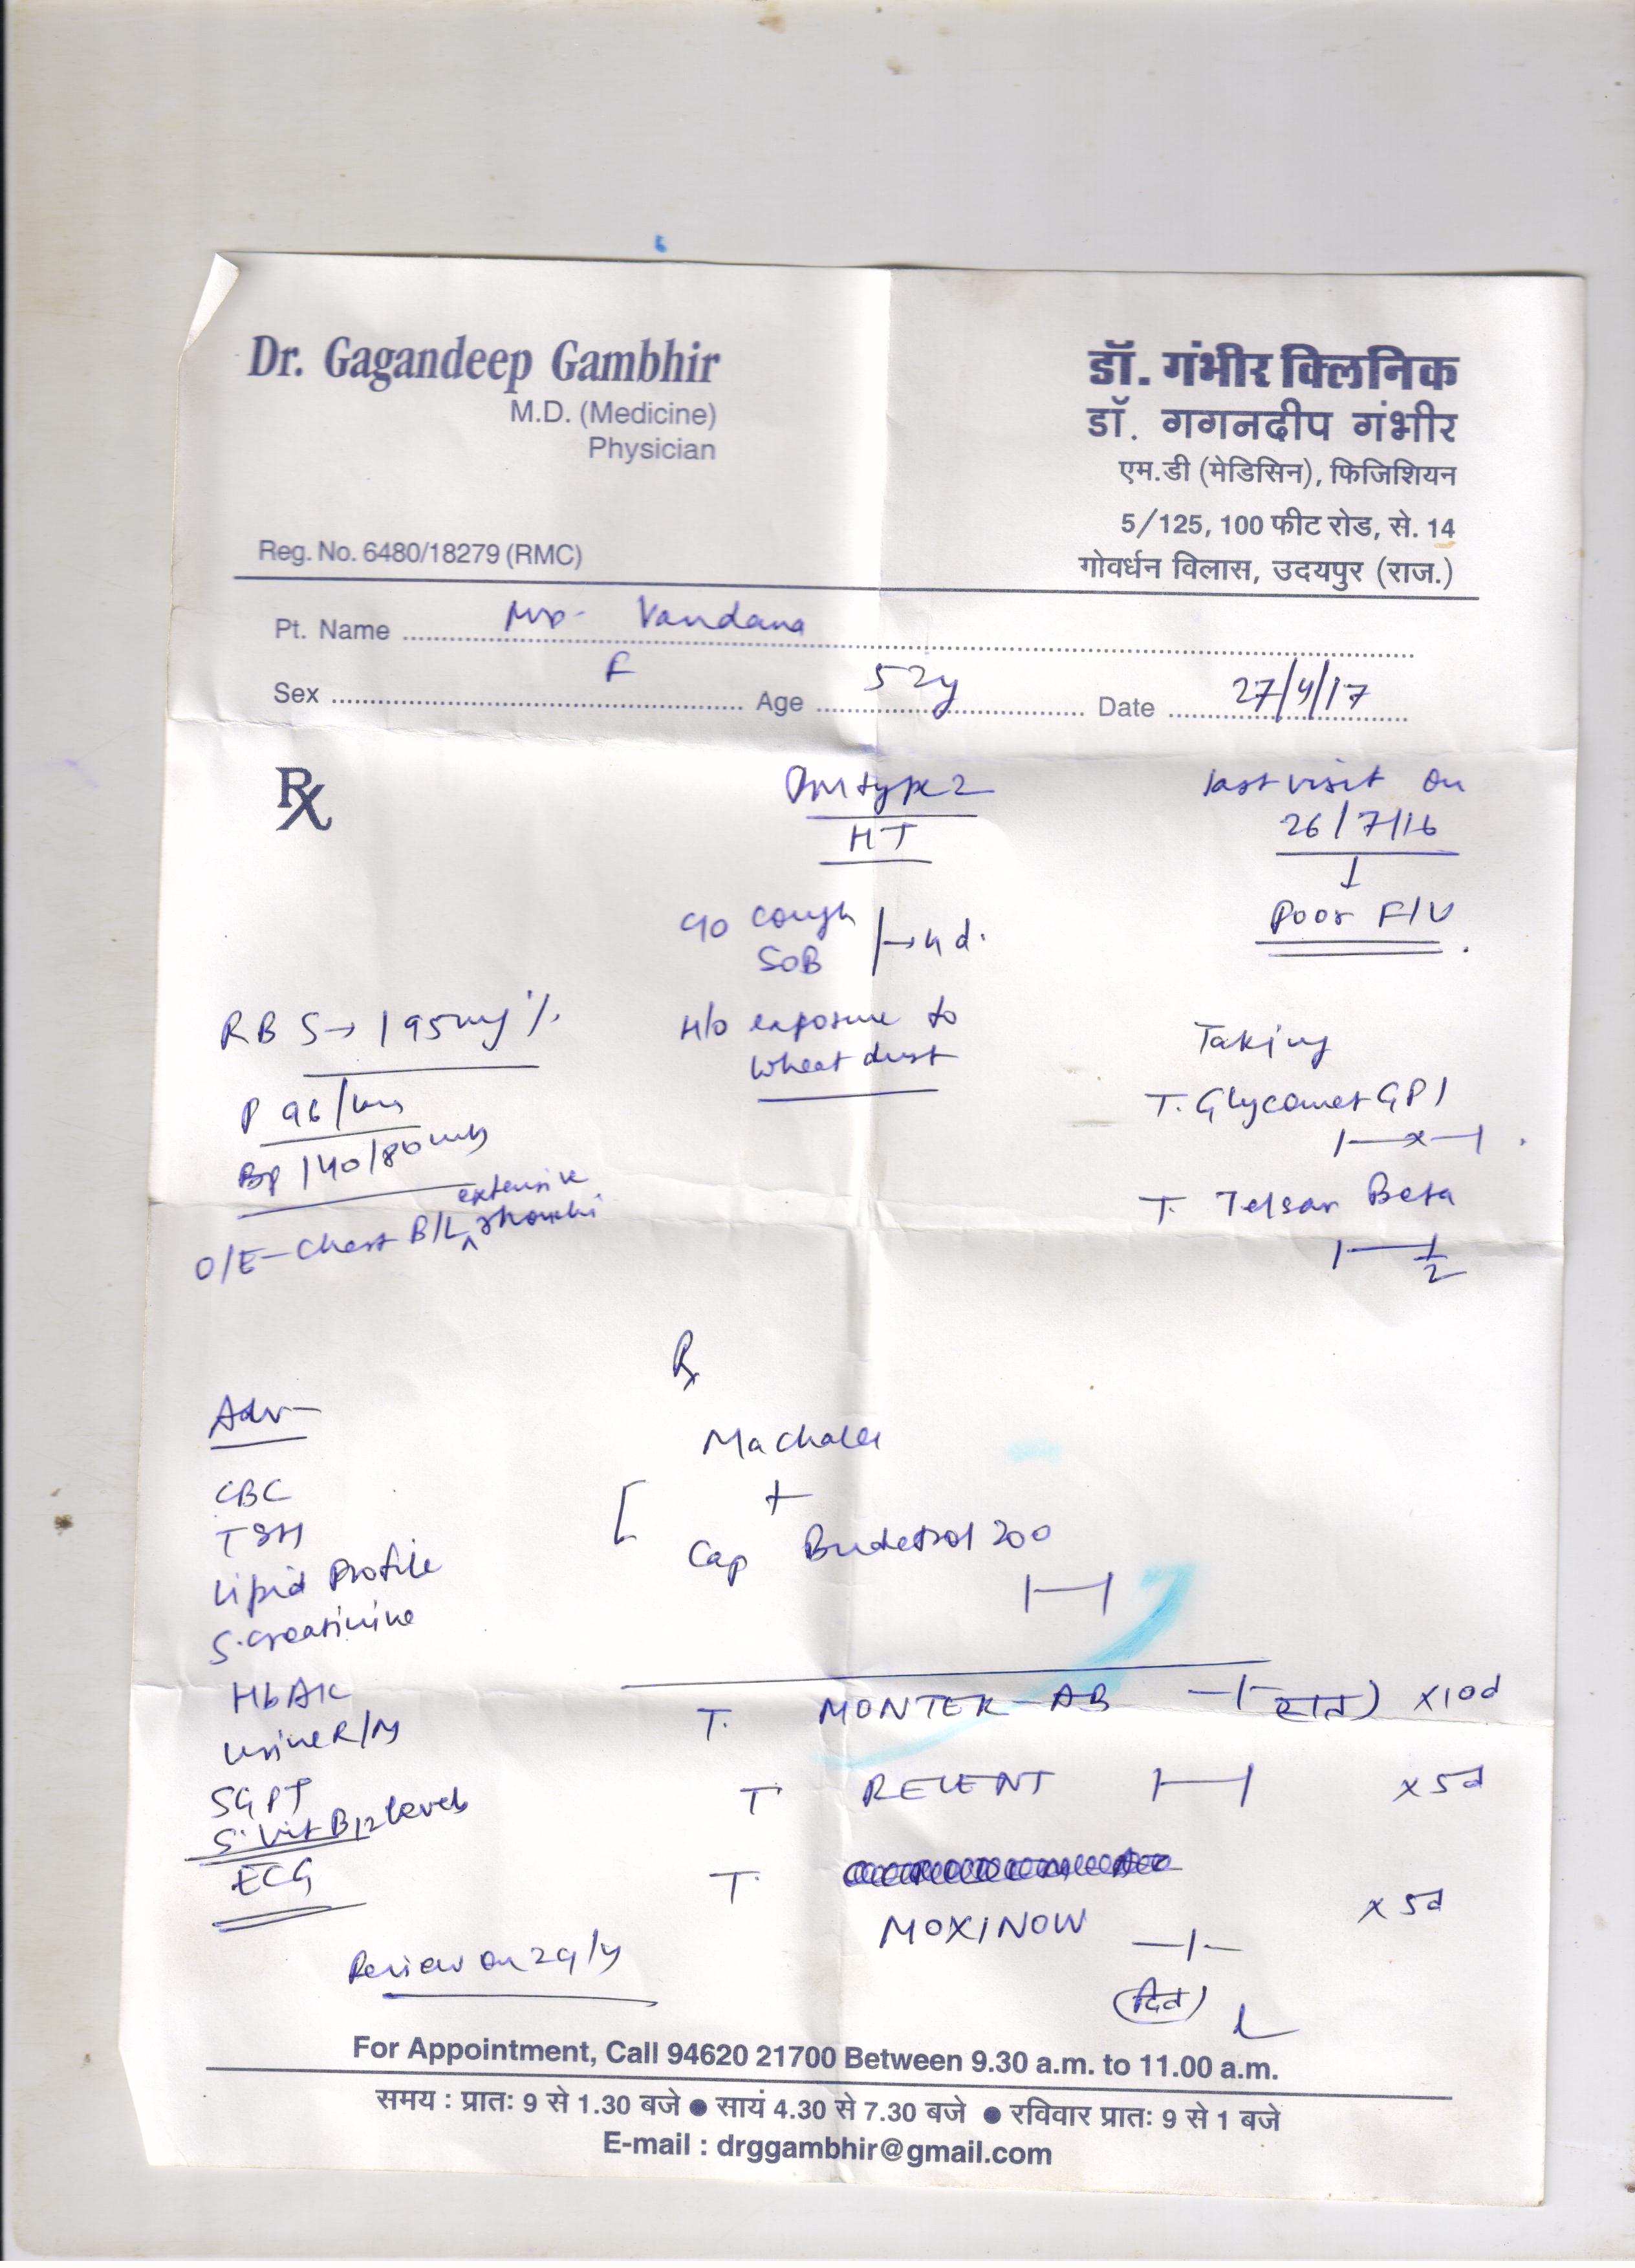 Dr. Gagandeep Gambhir
M.D. (Medicine)
Physician
Reg. No. 6480/18279 (RMC)
डॉ. गंभीर क्लिनिक
डॉ. गगनदीप गंभीर
एम.डी (मेडिसिन), फिजिशियन
5/125, 100 फीट रोड, से. 14
गोवर्धन विलास, उदयपुर (राज.)
Pt. Name Mrs. Vandana
Sex F Age 52y Date 27/4/17
Rx
DM type 2
HT
last visit on
26/7/16
↓
Poor F/U
c/o cough
SOB → 4d.
H/o exposure to
wheat dust
RBS → 195mg%
P 96/km
BP 140/80
O/E - Chest B/L extensive rhonchi
Taking
T. Glycomet GP1
1—x—1
T. Telsar Beta
1—½
Adv-
CBC
TSH
Lipid Profile
S. creatinine
HbA1c
Urine R/M
SGPT
S. Vit B12 levels
ECG
Review on 29/4
Rx
Machaler
+
Cap Budetrol 200
1—1
T. MONTEK-AB —1— रात) x10d
T RELENT 1—1 x5d
T.
MOXINOW —1— x5d
(दिन)
For Appointment, Call 94620 21700 Between 9.30 a.m. to 11.00 a.m.
समय : प्रातः 9 से 1.30 बजे ● सायं 4.30 से 7.30 बजे ● रविवार प्रातः 9 से 1 बजे
E-mail : drggambhir@gmail.com